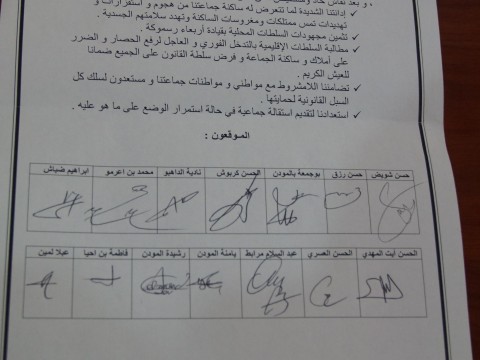 و بعد نقاش جاد و
✓ إدانتنا الشديدة لما تتعرض له ساكنة جماعتنا من هجوم و استفزازات و
تهديدات تمس ممتلكات ومغروسات الساكنة وتهدد سلامتهم الجسدية .
✓ تثمين مجهودات السلطات المحلية بقيادة أربعاء رسموكة .
✓ مطالبة السلطات الإقليمية بالتدخل الفوري و العاجل لرفع الحصار و الضرر
على أملاك و ساكنة الجماعة و فرض سلطة القانون على الجميع ضمانا
للعيش الكريم .
✓ تضامننا اللامشروط مع مواطني و مواطنات جماعتنا و مستعدون لسلك كل
السبل القانونية لحمايتها .
✓ استعدادنا لتقديم استقالة جماعية في حالة استمرار الوضع على ما هو عليه .
الموقعون :
حسن شويض حسن رزق بوجمعة بالمودن الحسن كربوش نادية الداهيو محمد بن اعرمو ابراهيم ضباش
الحسن آيت المهدي الحسن العسري عبد السلام مرابط يامنة المودن رشيدة المودن فاطمة بن احيا عبلا لمين